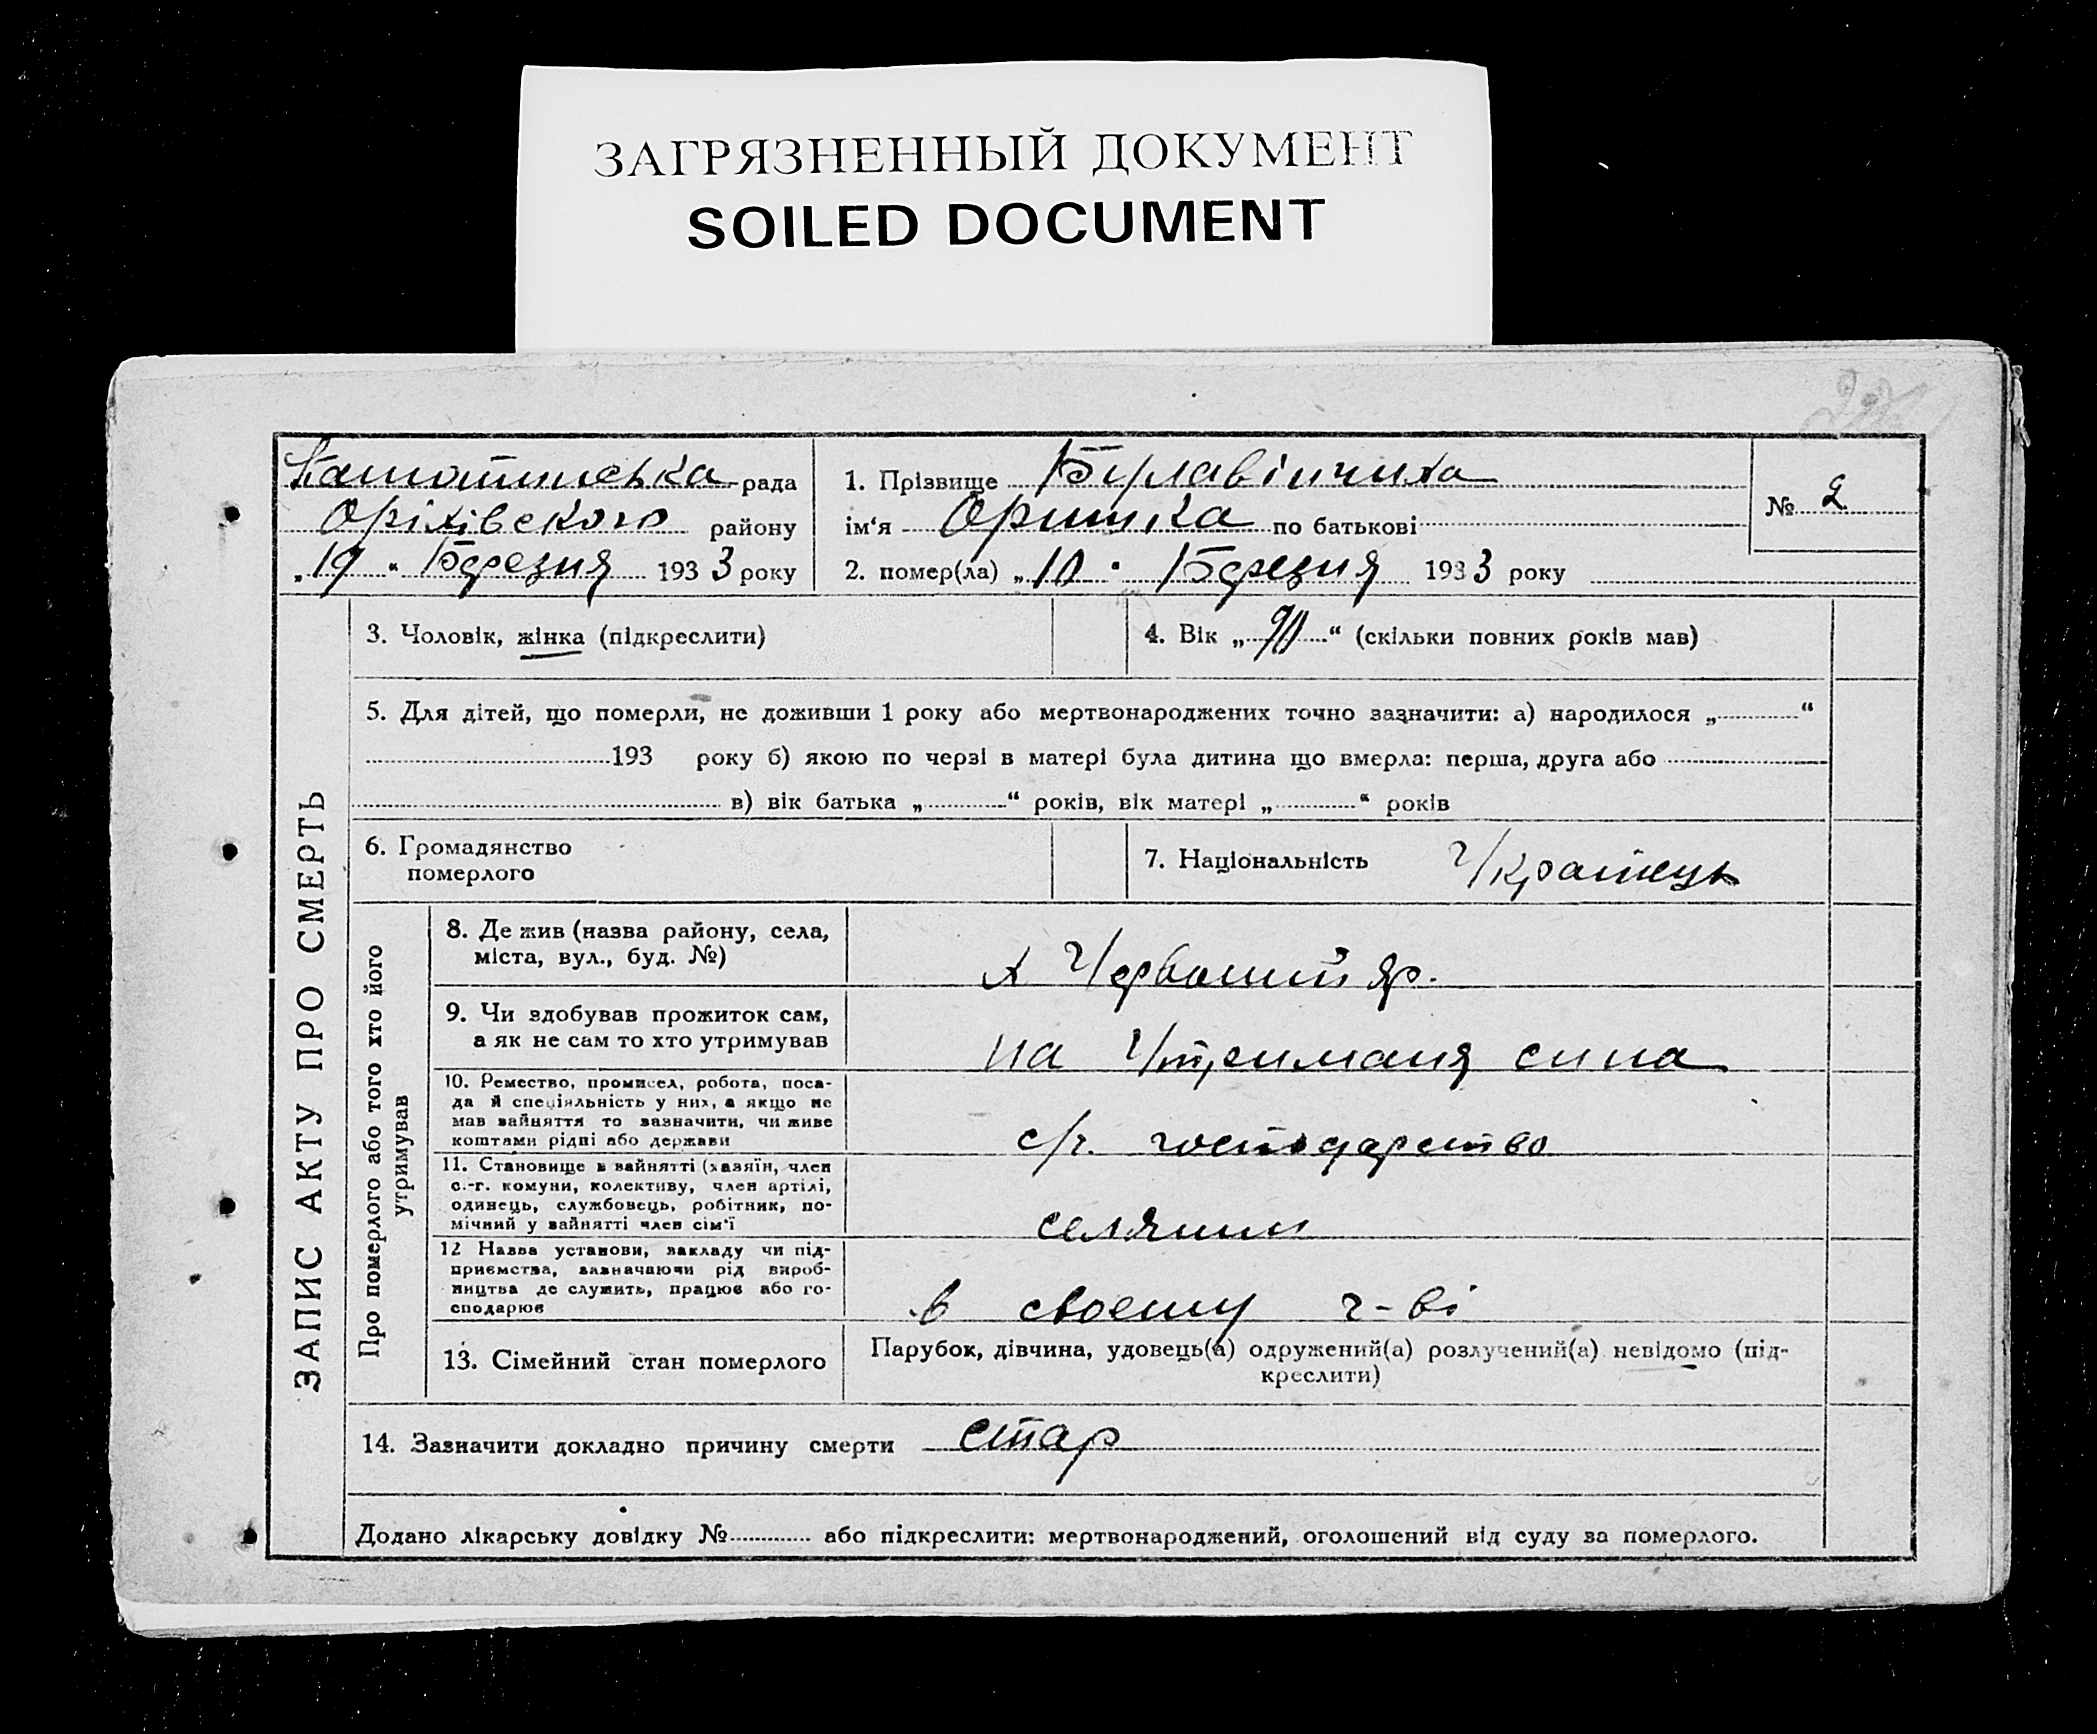 ЗАГРЯЗНЕННЫЙ ДОКУМЕНТ
SOILED DOCUMENT
рада
Оріхівского району
„19“ Березня 1933 року
1. Прізвище Булавінчиха
ім‘я Оришка по батькові
2. помер(ла) „10“ Березня 1933 року
№ 2
ЗАПИС АКТУ ПРО СМЕРТЬ
3. Чоловік, жінка (підкреслити)
4. Вік „90“ (скільки повних років мав)
5. Для дітей, що померли, не доживши 1 року або мертвонароджених точно зазначити: а) народилося „ “
193 року б) якою по черзі в матері була дитина що вмерла: перша, друга або
в) вік батька „ “ років, вік матері „ “ років
6. Громадянство
померлого
7. Національність Українець
Про померлого або того хто його
утримував
8. Де жив (назва району, села,
міста, вул., буд. №)
х Червоний яр.
9. Чи здобував прожиток сам,
а як не сам то хто утримував
на Утриманя сина
10. Ремество, промисел, робота, поса-
да й спеціяльність у них, а якщо не
мав зайняття то зазначити, чи живе
коштами рідні або держави
с/г. господарство
11. Становище в зайнятті (хазяїн, член
с.-г. комуни, колективу, член артілі,
одинець, службовець, робітник, по-
мічний у зайнятті член сім‘ї
селянин
12 Назва установи, закладу чи під-
приємства, зазначаючи рід вироб-
ництва де служить, працює або го-
сподарює
в своему г-ві
13. Сімейний стан померлого
Парубок, дівчина, удовець(а) одружений(а) розлучений(а) невідомо (під-
креслити)
14. Зазначити докладно причину смерти стар
Додано лікарську довідку № або підкреслити: мертвонароджений, оголошений від суду за померлого.